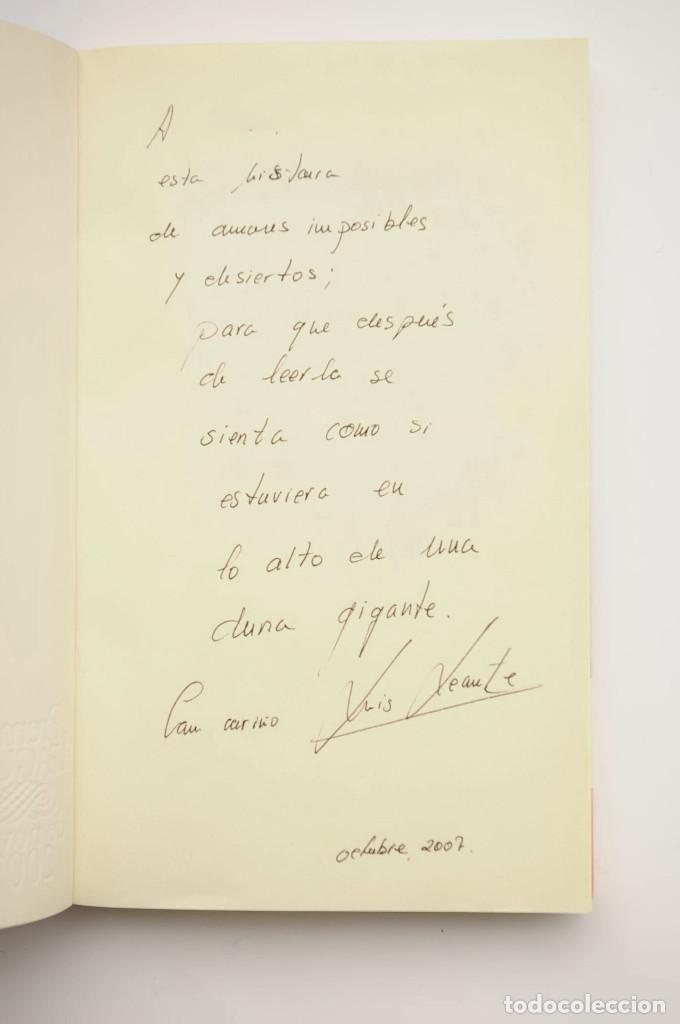 A
esta historia
de amores imposibles
y desiertos;
para que después
de leerla se
sienta como si
estuviera en
lo alto de una
duna gigante.
Con cariño Luis Leante
octubre, 2007.
todocoleccion